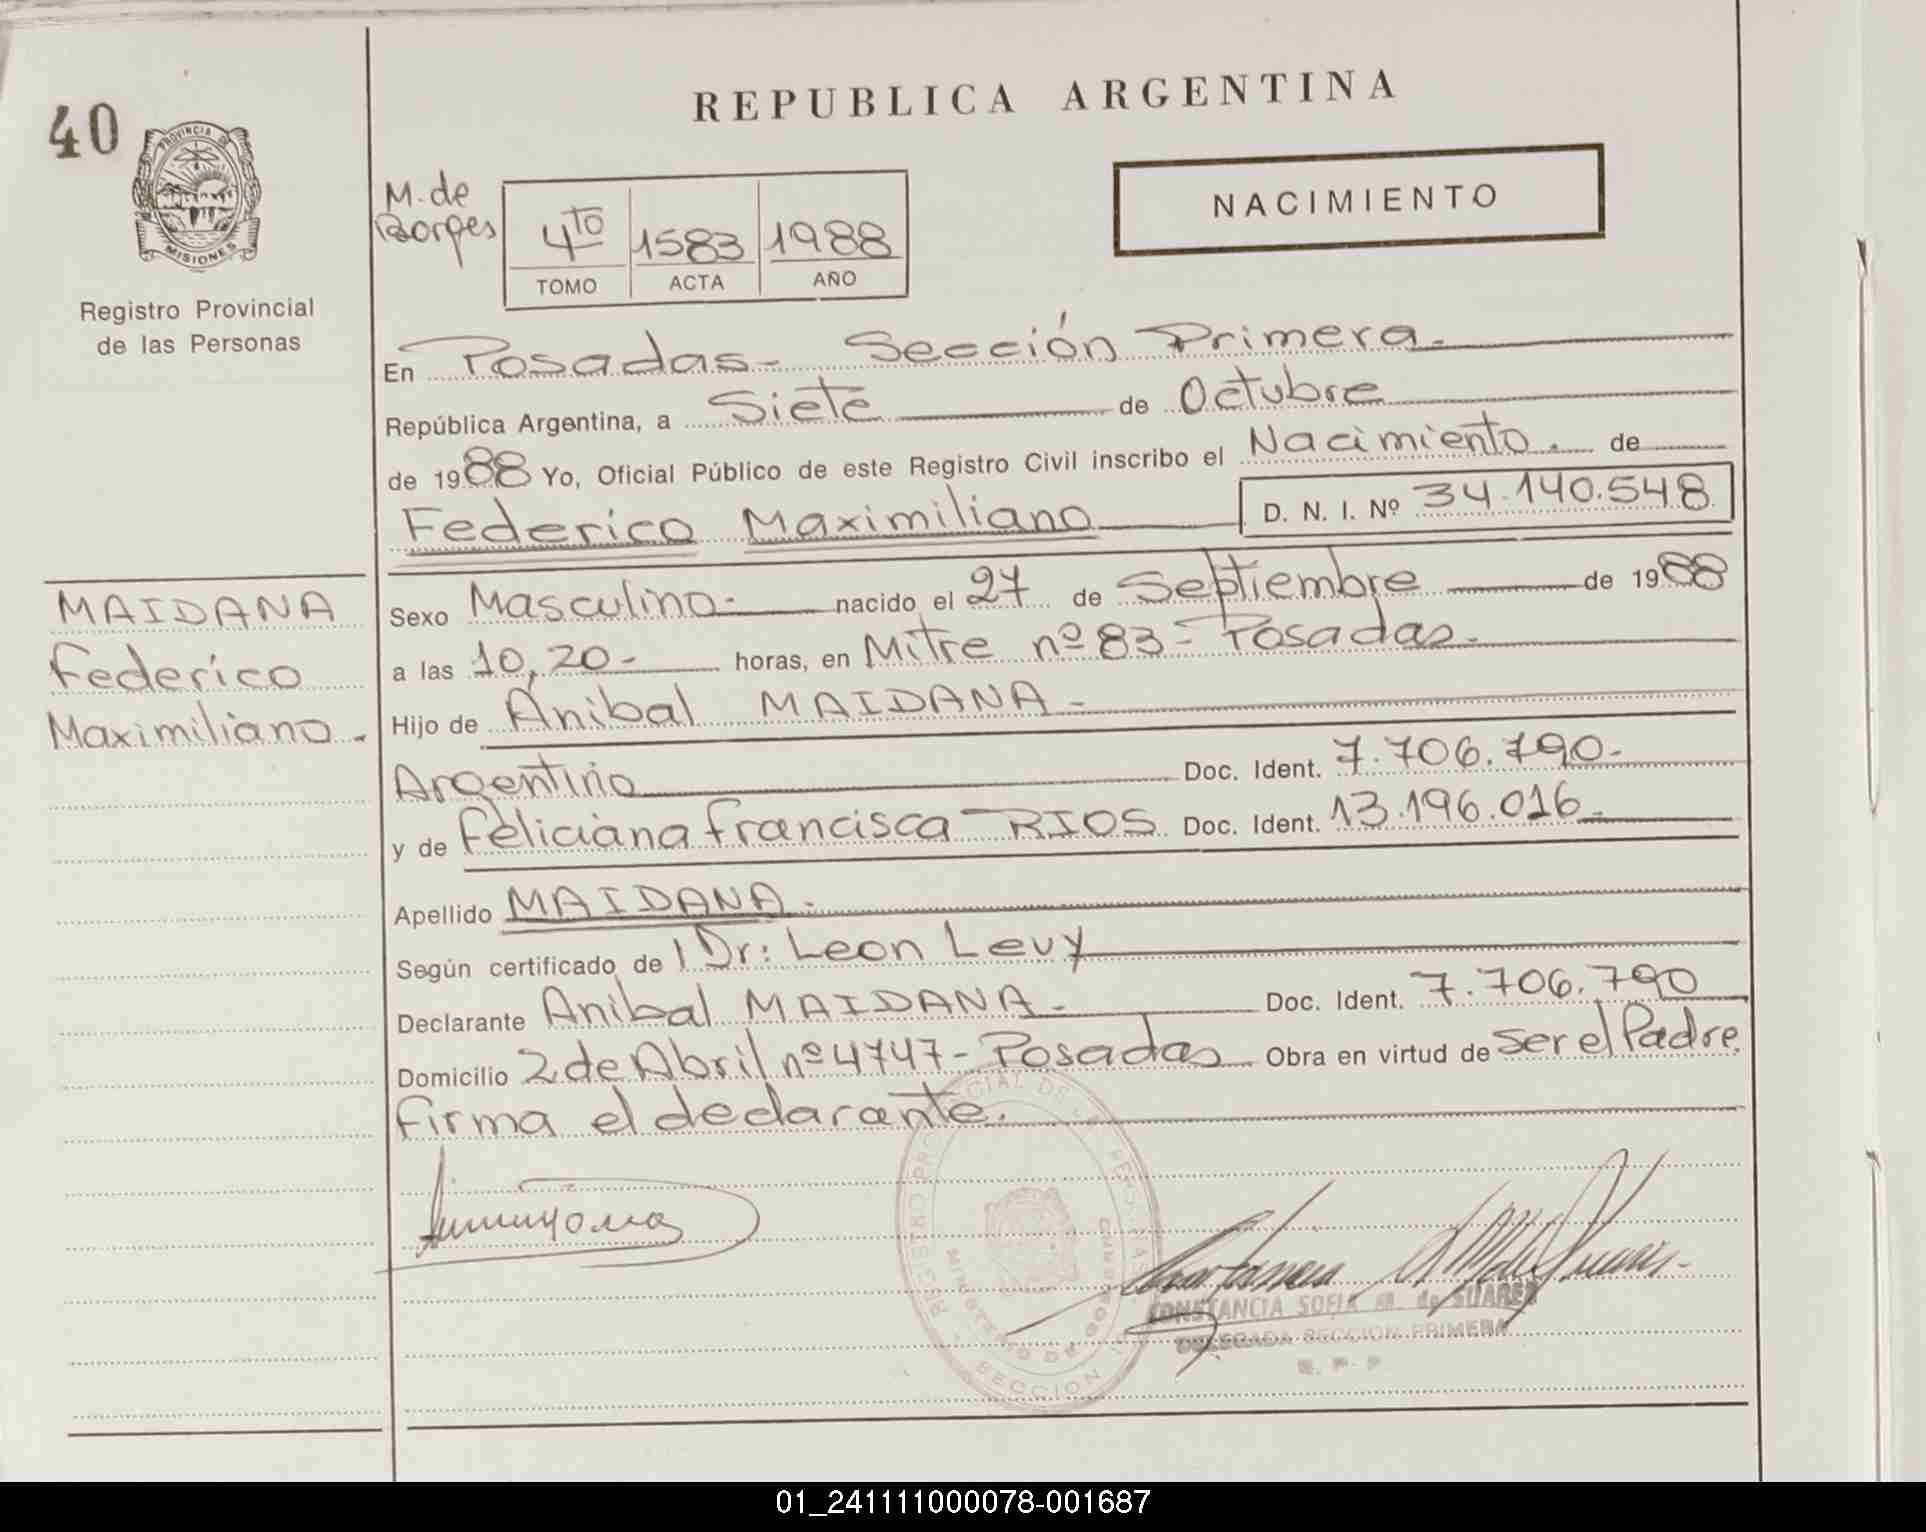 40
REPUBLICA ARGENTINA
PROVINCIA DE
MISIONES
Registro Provincial
de las Personas
M. de
Borges
4TO 1583 1988
TOMO ACTA AÑO
NACIMIENTO
En Posadas- Sección Primera.
República Argentina, a Siete de Octubre
de 1988 Yo, Oficial Público de este Registro Civil inscribo el Nacimiento. de
Federico Maximiliano D. N. I. Nº 34.140.548
MAIDANA
Federico
Maximiliano.
Sexo Masculino- nacido el 27 de Septiembre de 1988
a las 10,20- horas, en Mitre nº 83 - Posadas-
Hijo de Anibal MAIDANA-
Argentino Doc. Ident. 7.706.790-
y de Feliciana Francisca RIOS Doc. Ident. 13.196.016-
Apellido MAIDANA.
Según certificado de l Dr: Leon Levy
Declarante Anibal MAIDANA- Doc. Ident. 7.706.790
Domicilio 2 de Abril nº 4747- Posadas Obra en virtud de ser el Padre
firma el declarante.
REGISTRO PROVINCIAL DE LAS PERSONAS
MINISTERIO DE GOBIERNO
SECCION
CONSTANCIA SOFIA M. de SUAREZ
DELEGADA SECCION PRIMERA
R. P. P
01_241111000078-001687